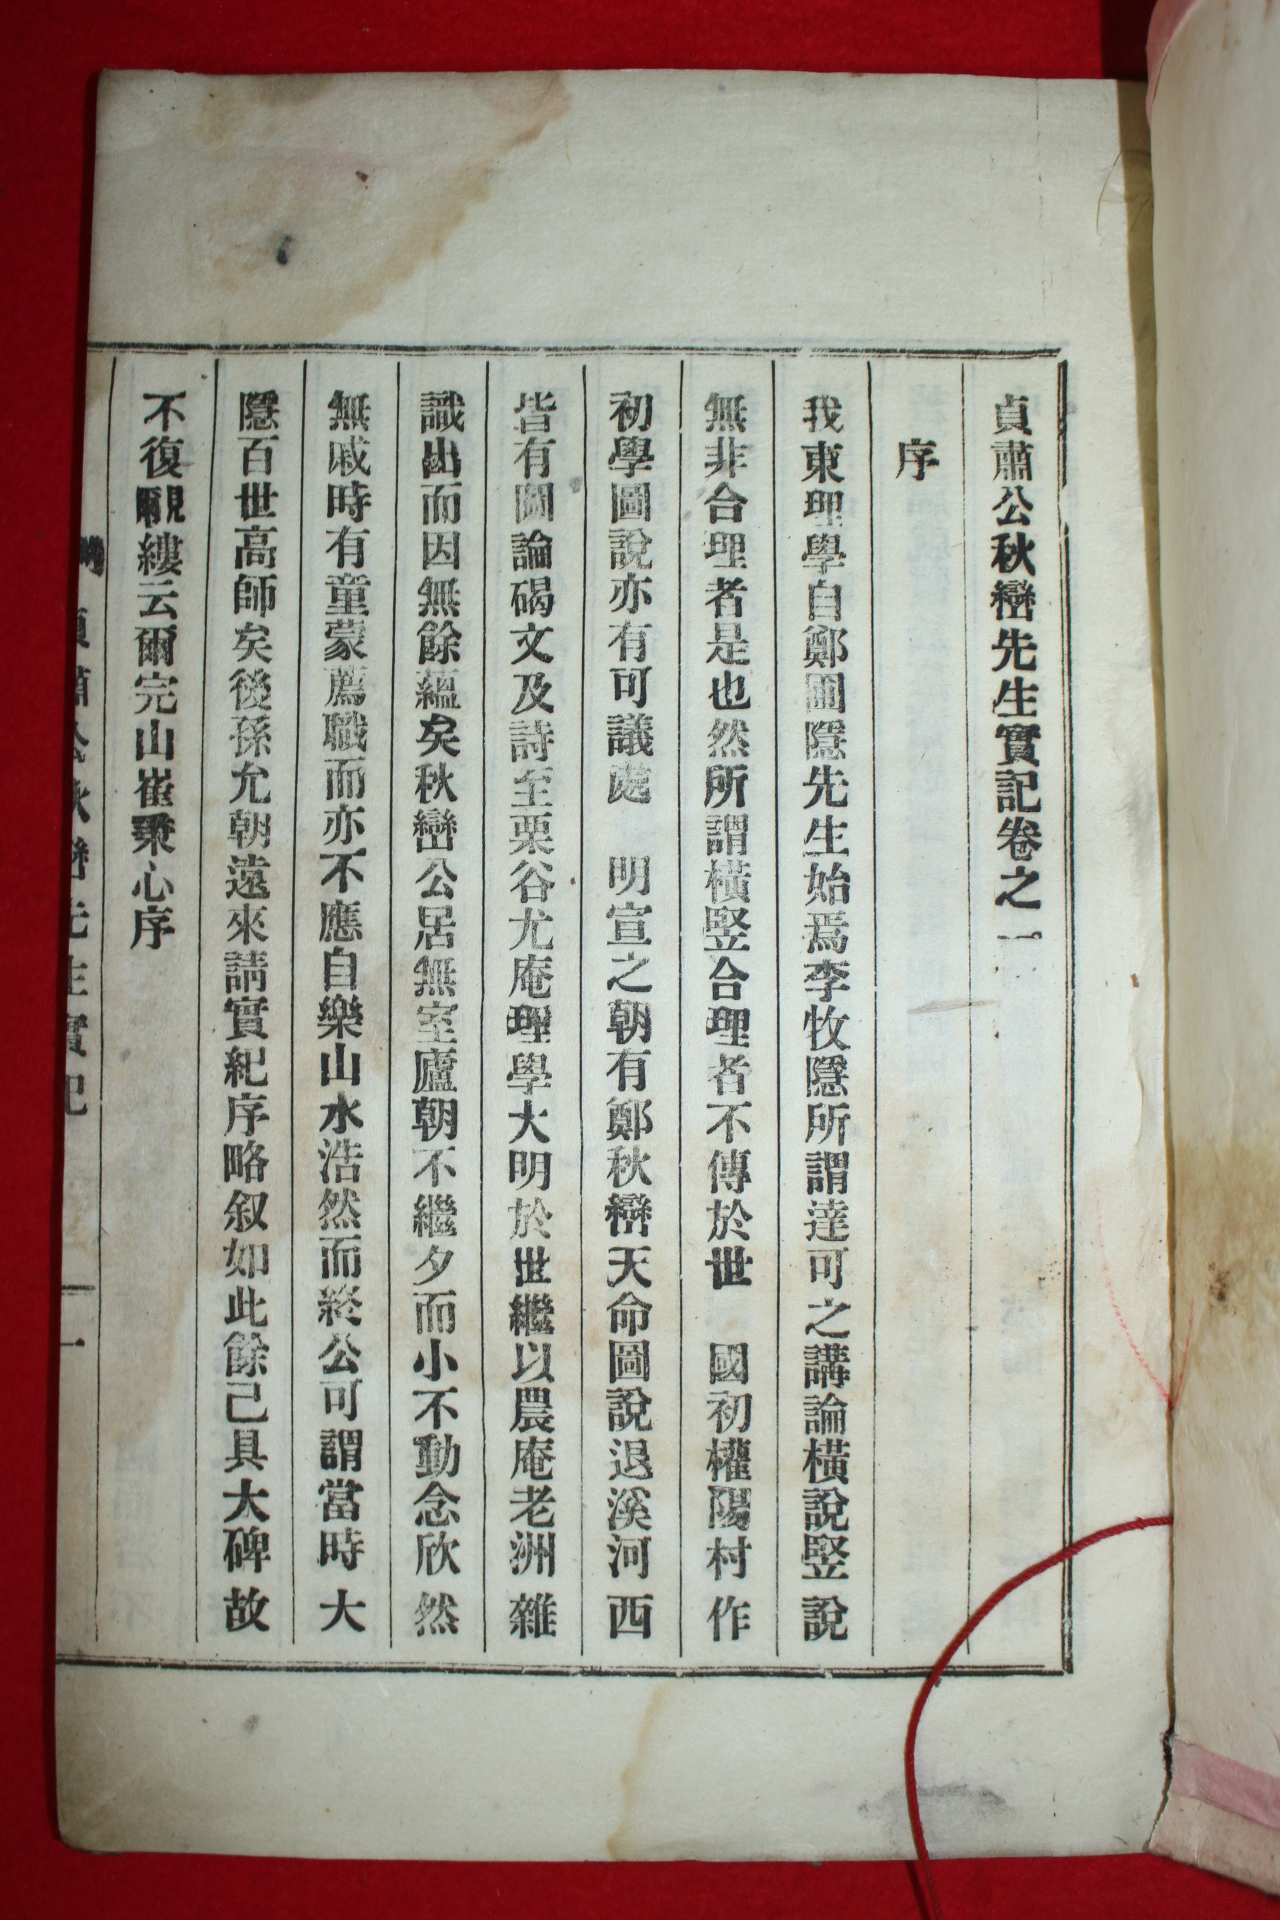 貞肅公秋巒先生實記卷之一
序
我東理學自鄭圃隱先生始焉李牧隱所謂達可之講論橫說竪說
無非合理者是也然所謂橫竪合理者不傳於世　國初權陽村作
初學圖說亦有可議處　明宣之朝有鄭秋巒天命圖說退溪河西
皆有圖論碣文及詩至栗谷尤庵理學大明於世繼以農庵老洲雜
識出而因無餘蘊矣秋巒公居無室廬朝不繼夕而小不動念欣然
無戚時有童蒙薦職而亦不應自樂山水浩然而終公可謂當時大
隱百世高師矣後孫允朝遠來請實紀序略叙如此餘己具大碑故
不復覼縷云爾完山崔秉心序
貞肅公秋巒先生實記
一